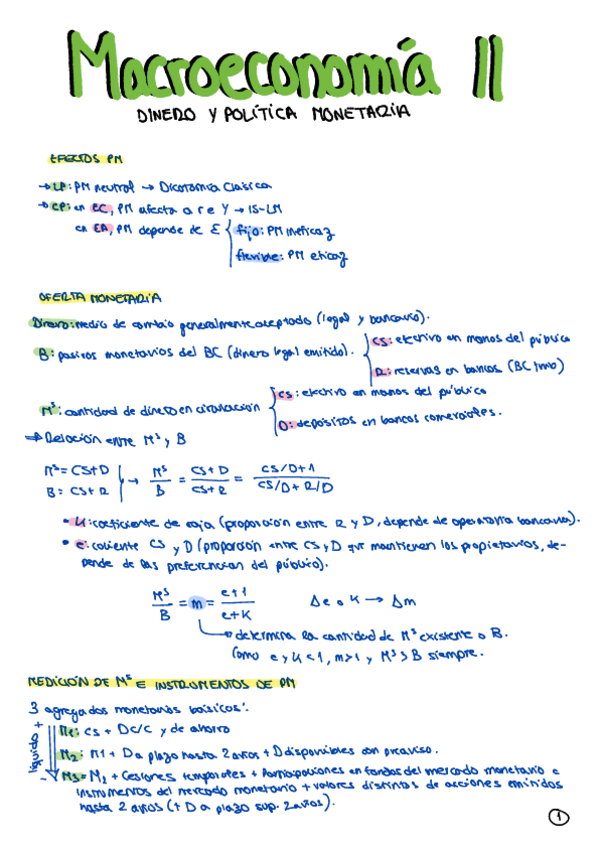 Macroeconomía II
DINERO Y POLÍTICA MONETARIA
EFECTOS PM
→ LP: PM neutral → Dicotomía Clásica
→ CP: en EC, PM afecta a r e Y → IS-LM
en EA, PM depende de Ɛ { fijo: PM ineficaz
flexible: PM eficaz
OFERTA MONETARIA
Dinero: medio de cambio generalmente aceptado (legal y bancario).
B: pasivos monetarios del BC (dinero legal emitido). { CS: efectivo en manos del público
R: reservas en bancos (BC tmb)
Mˢ: cantidad de dinero en circulación { CS: efectivo en manos del público
D: depósitos en bancos comerciales.
⇒ Relación entre Mˢ y B
Mˢ = CS+D
B = CS+R } → Mˢ/B = CS+D/CS+R = CS/D+1 / CS/D+R/D
• K: coeficiente de caja (proporción entre R y D, depende de operatoria bancaria).
• e: cociente CS y D (proporción entre CS y D que mantienen los propietarios, de-
pende de las preferencias del público).
Mˢ/B = m = e+1/e+K Δe o K → Δm
→ determina la cantidad de Mˢ existente o B.
Como e y K < 1, m>1 y Mˢ>B siempre.
MEDICIÓN DE Mˢ E INSTRUMENTOS DE PM
3 agregados monetarios básicos:
líquido + -
M1: CS + DC/C y de ahorro
M2: M1 + D a plazo hasta 2 años + D disponibles con preaviso.
M3 = M2 + Cesiones temporales + Participaciones en fondos del mercado monetario e
instrumentos del mercado monetario + valores distintos de acciones emitidos
hasta 2 años (+ D a plazo sup. 2 años).
1